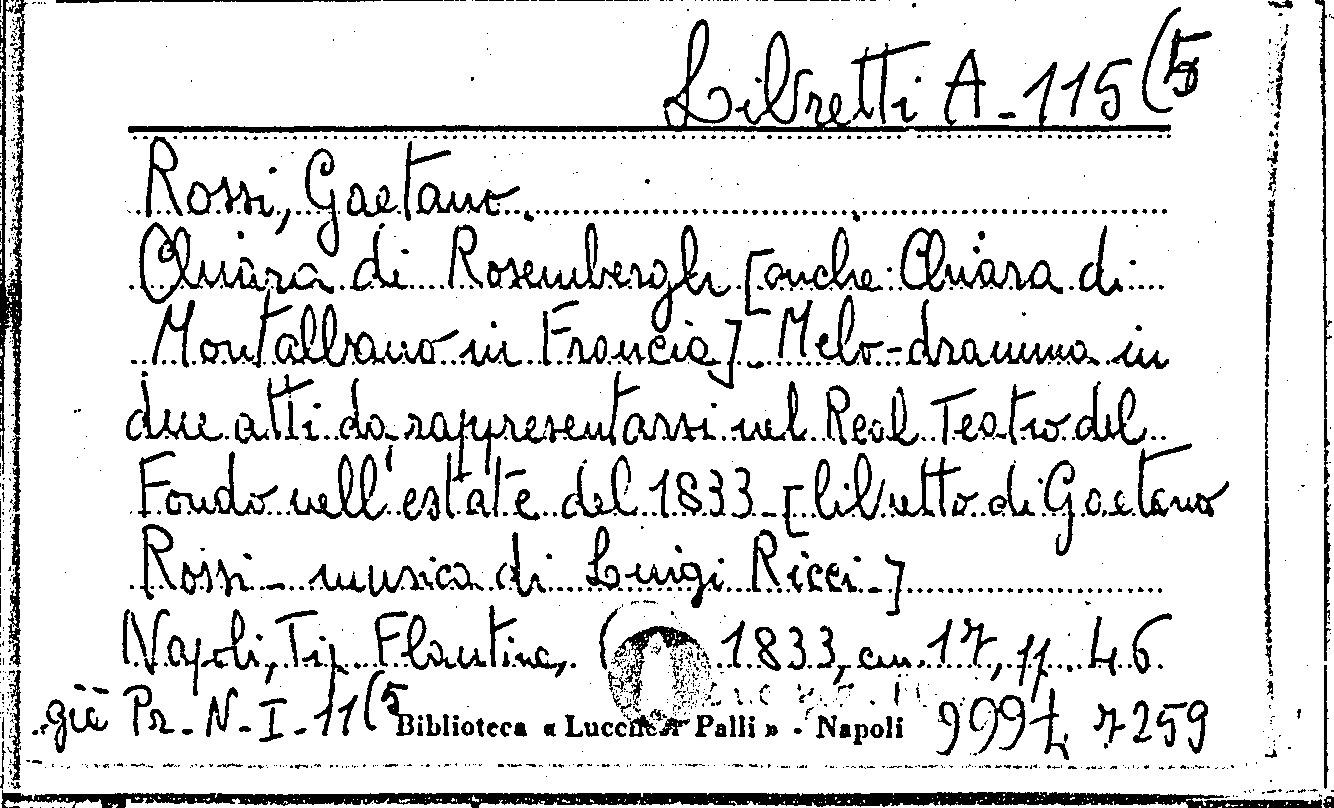 Libretti A - 115 (5
Rossi, Gaetano.
Chiara di Rosembergh [anche: Chiara di
Montalbano in Francia]. Melo-dramma in
due atti da rappresentarsi nel Real Teatro del
Fondo nell'estate del 1833 - [libretto di Gaetano
Rossi - musica di Luigi Ricci -]
Napoli, Tip. Flautina, 1833, cm. 17, pp. 46
già Pr. N - I - 11 (5
Biblioteca « Lucchesi Palli » - Napoli
7259